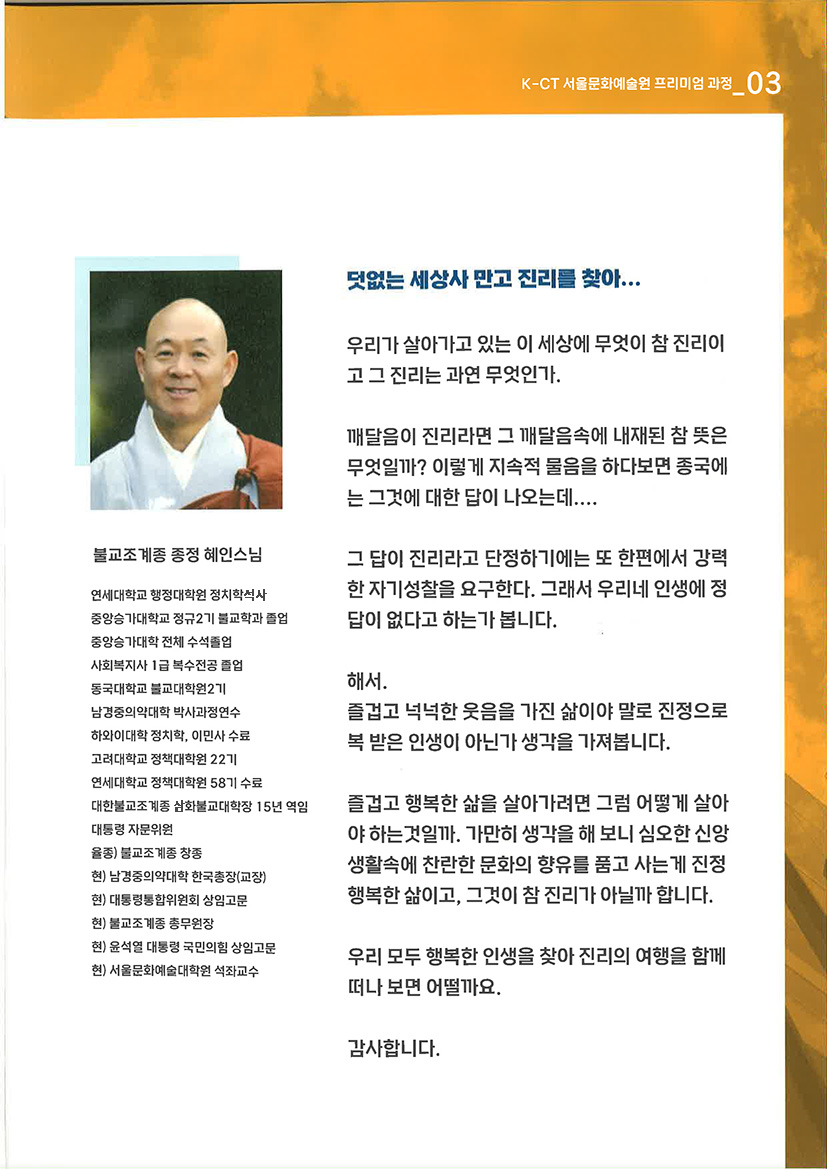 K-CT 서울문화예술원 프리미엄 과정_03
덧없는 세상사 만고 진리를 찾아...
우리가 살아가고 있는 이 세상에 무엇이 참 진리이
고 그 진리는 과연 무엇인가.
깨달음이 진리라면 그 깨달음속에 내재된 참 뜻은
무엇일까? 이렇게 지속적 물음을 하다보면 종국에
는 그것에 대한 답이 나오는데....
그 답이 진리라고 단정하기에는 또 한편에서 강력
한 자기성찰을 요구한다. 그래서 우리네 인생에 정
답이 없다고 하는가 봅니다.
해서.
즐겁고 넉넉한 웃음을 가진 삶이야 말로 진정으로
복 받은 인생이 아닌가 생각을 가져봅니다.
즐겁고 행복한 삶을 살아가려면 그럼 어떻게 살아
야 하는것일까. 가만히 생각을 해 보니 심오한 신앙
생활속에 찬란한 문화의 향유를 품고 사는게 진정
행복한 삶이고, 그것이 참 진리가 아닐까 합니다.
우리 모두 행복한 인생을 찾아 진리의 여행을 함께
떠나 보면 어떨까요.
감사합니다.
불교조계종 종정 혜인스님
연세대학교 행정대학원 정치학석사
중앙승가대학교 정규2기 불교학과 졸업
중앙승가대학 전체 수석졸업
사회복지사 1급 복수전공 졸업
동국대학교 불교대학원2기
남경중의약대학 박사과정연수
하와이대학 정치학, 이민사 수료
고려대학교 정책대학원 22기
연세대학교 정책대학원 58기 수료
대한불교조계종 삼화불교대학장 15년 역임
대통령 자문위원
율종) 불교조계종 창종
현) 남경중의약대학 한국총장(교장)
현) 대통령통합위원회 상임고문
현) 불교조계종 총무원장
현) 윤석열 대통령 국민의힘 상임고문
현) 서울문화예술대학원 석좌교수